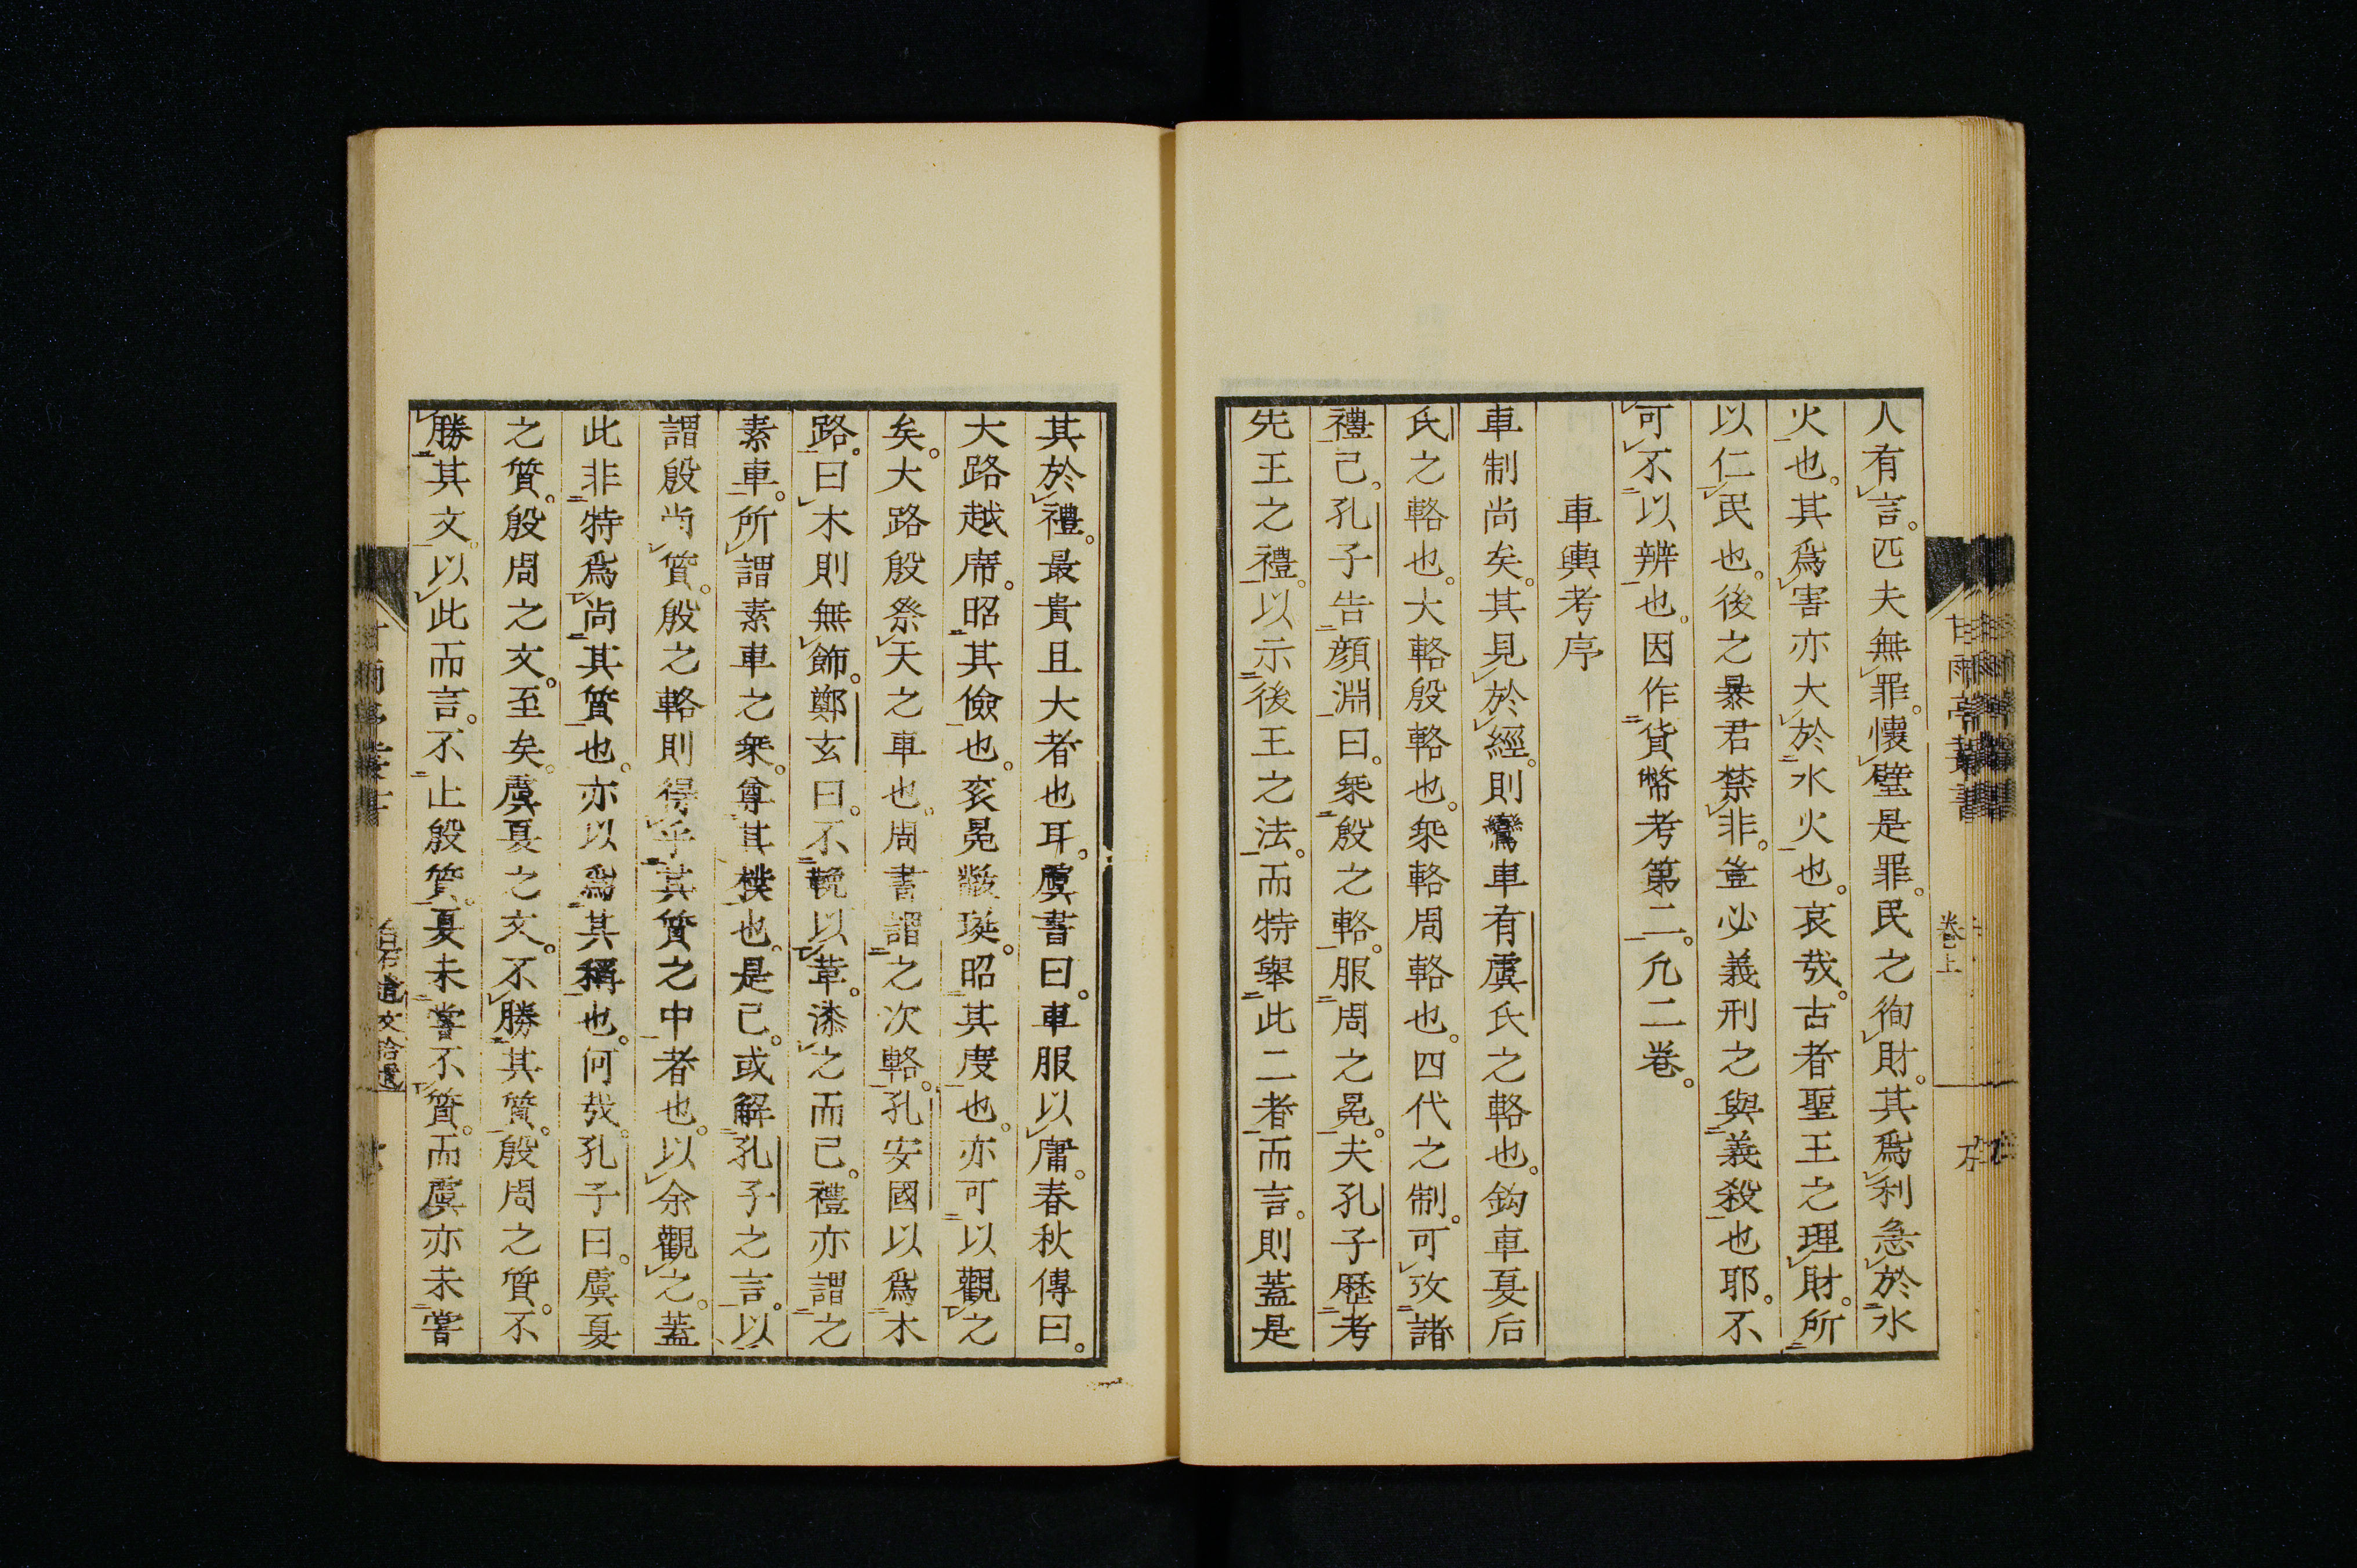 人有言。匹夫無罪。懷璧是罪。民之徇財。其爲利急於水
火也。其爲害亦大於水火也。哀哉。古者聖王之理財。所
以仁民也。後之暴君禁非。豈必義刑之與義殺也耶。不
可不以辨也。因作貨幣考第二。凢二卷。
車輿考序
車制尚矣。其見於經。則鸞車有虞氏之輅也。鈎車夏后
氏之輅也。大輅殷輅也。椉輅周輅也。四代之制。可攷諸
禮已。孔子告顏淵曰。椉殷之輅。服周之冕。夫孔子歷考
先王之禮。以示後王之法。而特舉此二者而言。則蓋是
其於禮。最貴且大者也耳。虞書曰。車服以庸。春秋傳曰。
大路越席。昭其儉也。袞冕黻珽。昭其度也。亦可以觀之
矣。大路殷祭天之車也。周書謂之次輅。孔安國以爲木
路。曰木則無飾。鄭玄曰。不鞔以革。漆之而已。禮亦謂之
素車。所謂素車之椉。尊其樸也。是已。或解孔子之言。以
謂殷尚質。殷之輅則得乎其質之中者也。以余觀之。蓋
此非特爲尚其質也。亦以爲其稱也。何哉。孔子曰。虞夏
之質。殷周之文。至矣。虞夏之文。不勝其質。殷周之質。不
勝其文。以此而言。不止殷質。夏未嘗不質。而虞亦未嘗
甘雨亭叢書
卷上